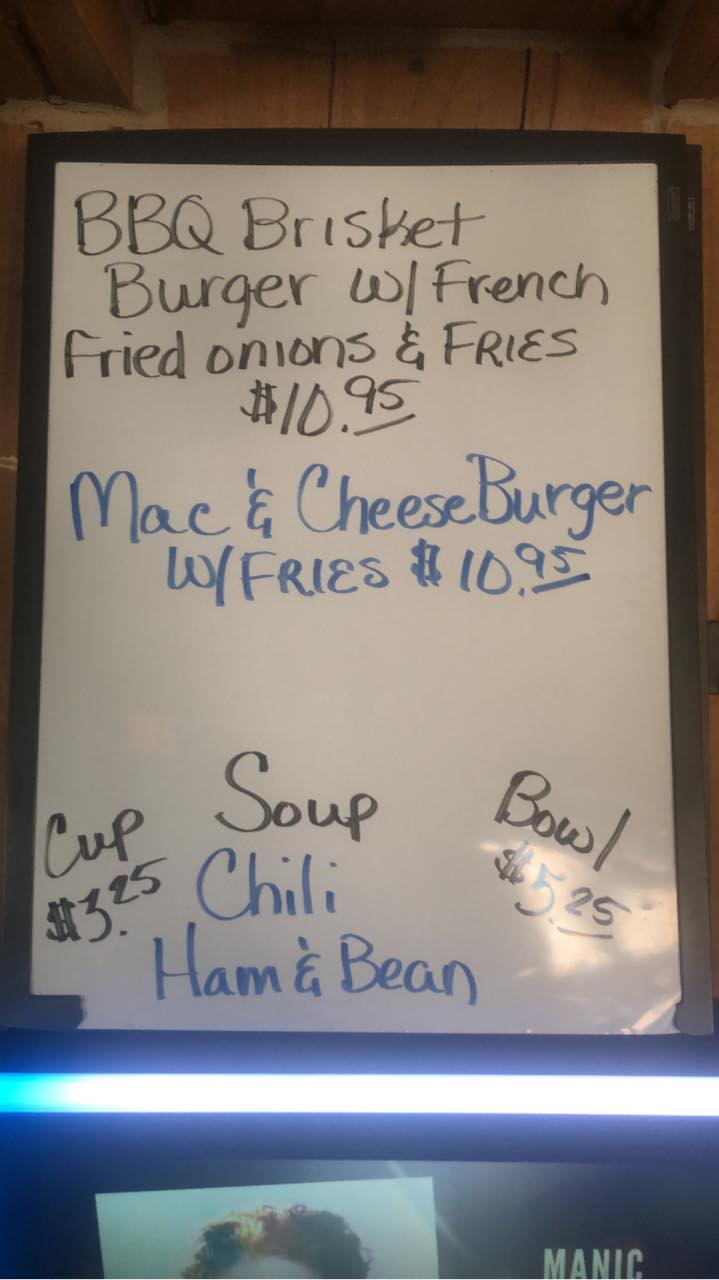 BBQ Brisket
Burger w/ French
Fried onions & FRIES
$10.95
Mac & CheeseBurger
W/FRIES $10.95
Soup
Cup
$3.25
Bowl
$5.25
Chili
Ham & Bean
MANIC